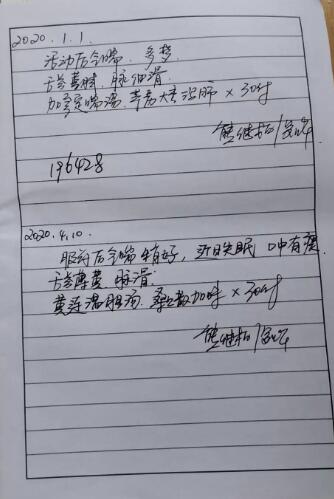 2020.1.1.
活动后气喘，多梦
舌苔黄腻，脉细滑.
加味定喘汤 葶苈大枣泻肺 × 30付
熊继柏
196428
2020.4.10.
服药后气喘稍好，近日失眠 口中有痰.
舌苔薄黄 脉滑.
黄连温胆汤. × 30付
熊继柏